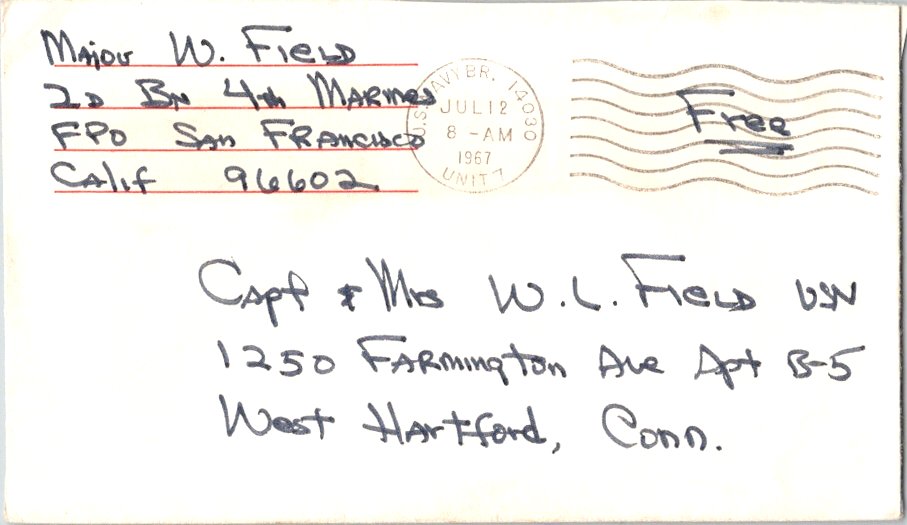 Major W. Field
2D BN 4th Marines
FPO San Francisco
Calif 96602
U.S. NAVY BR. 14030
JUL 12
8 -AM
1967
UNIT 7
Free
Capt & Mrs W. L. Field USN
1250 Farmington Ave Apt B-5
West Hartford, Conn.